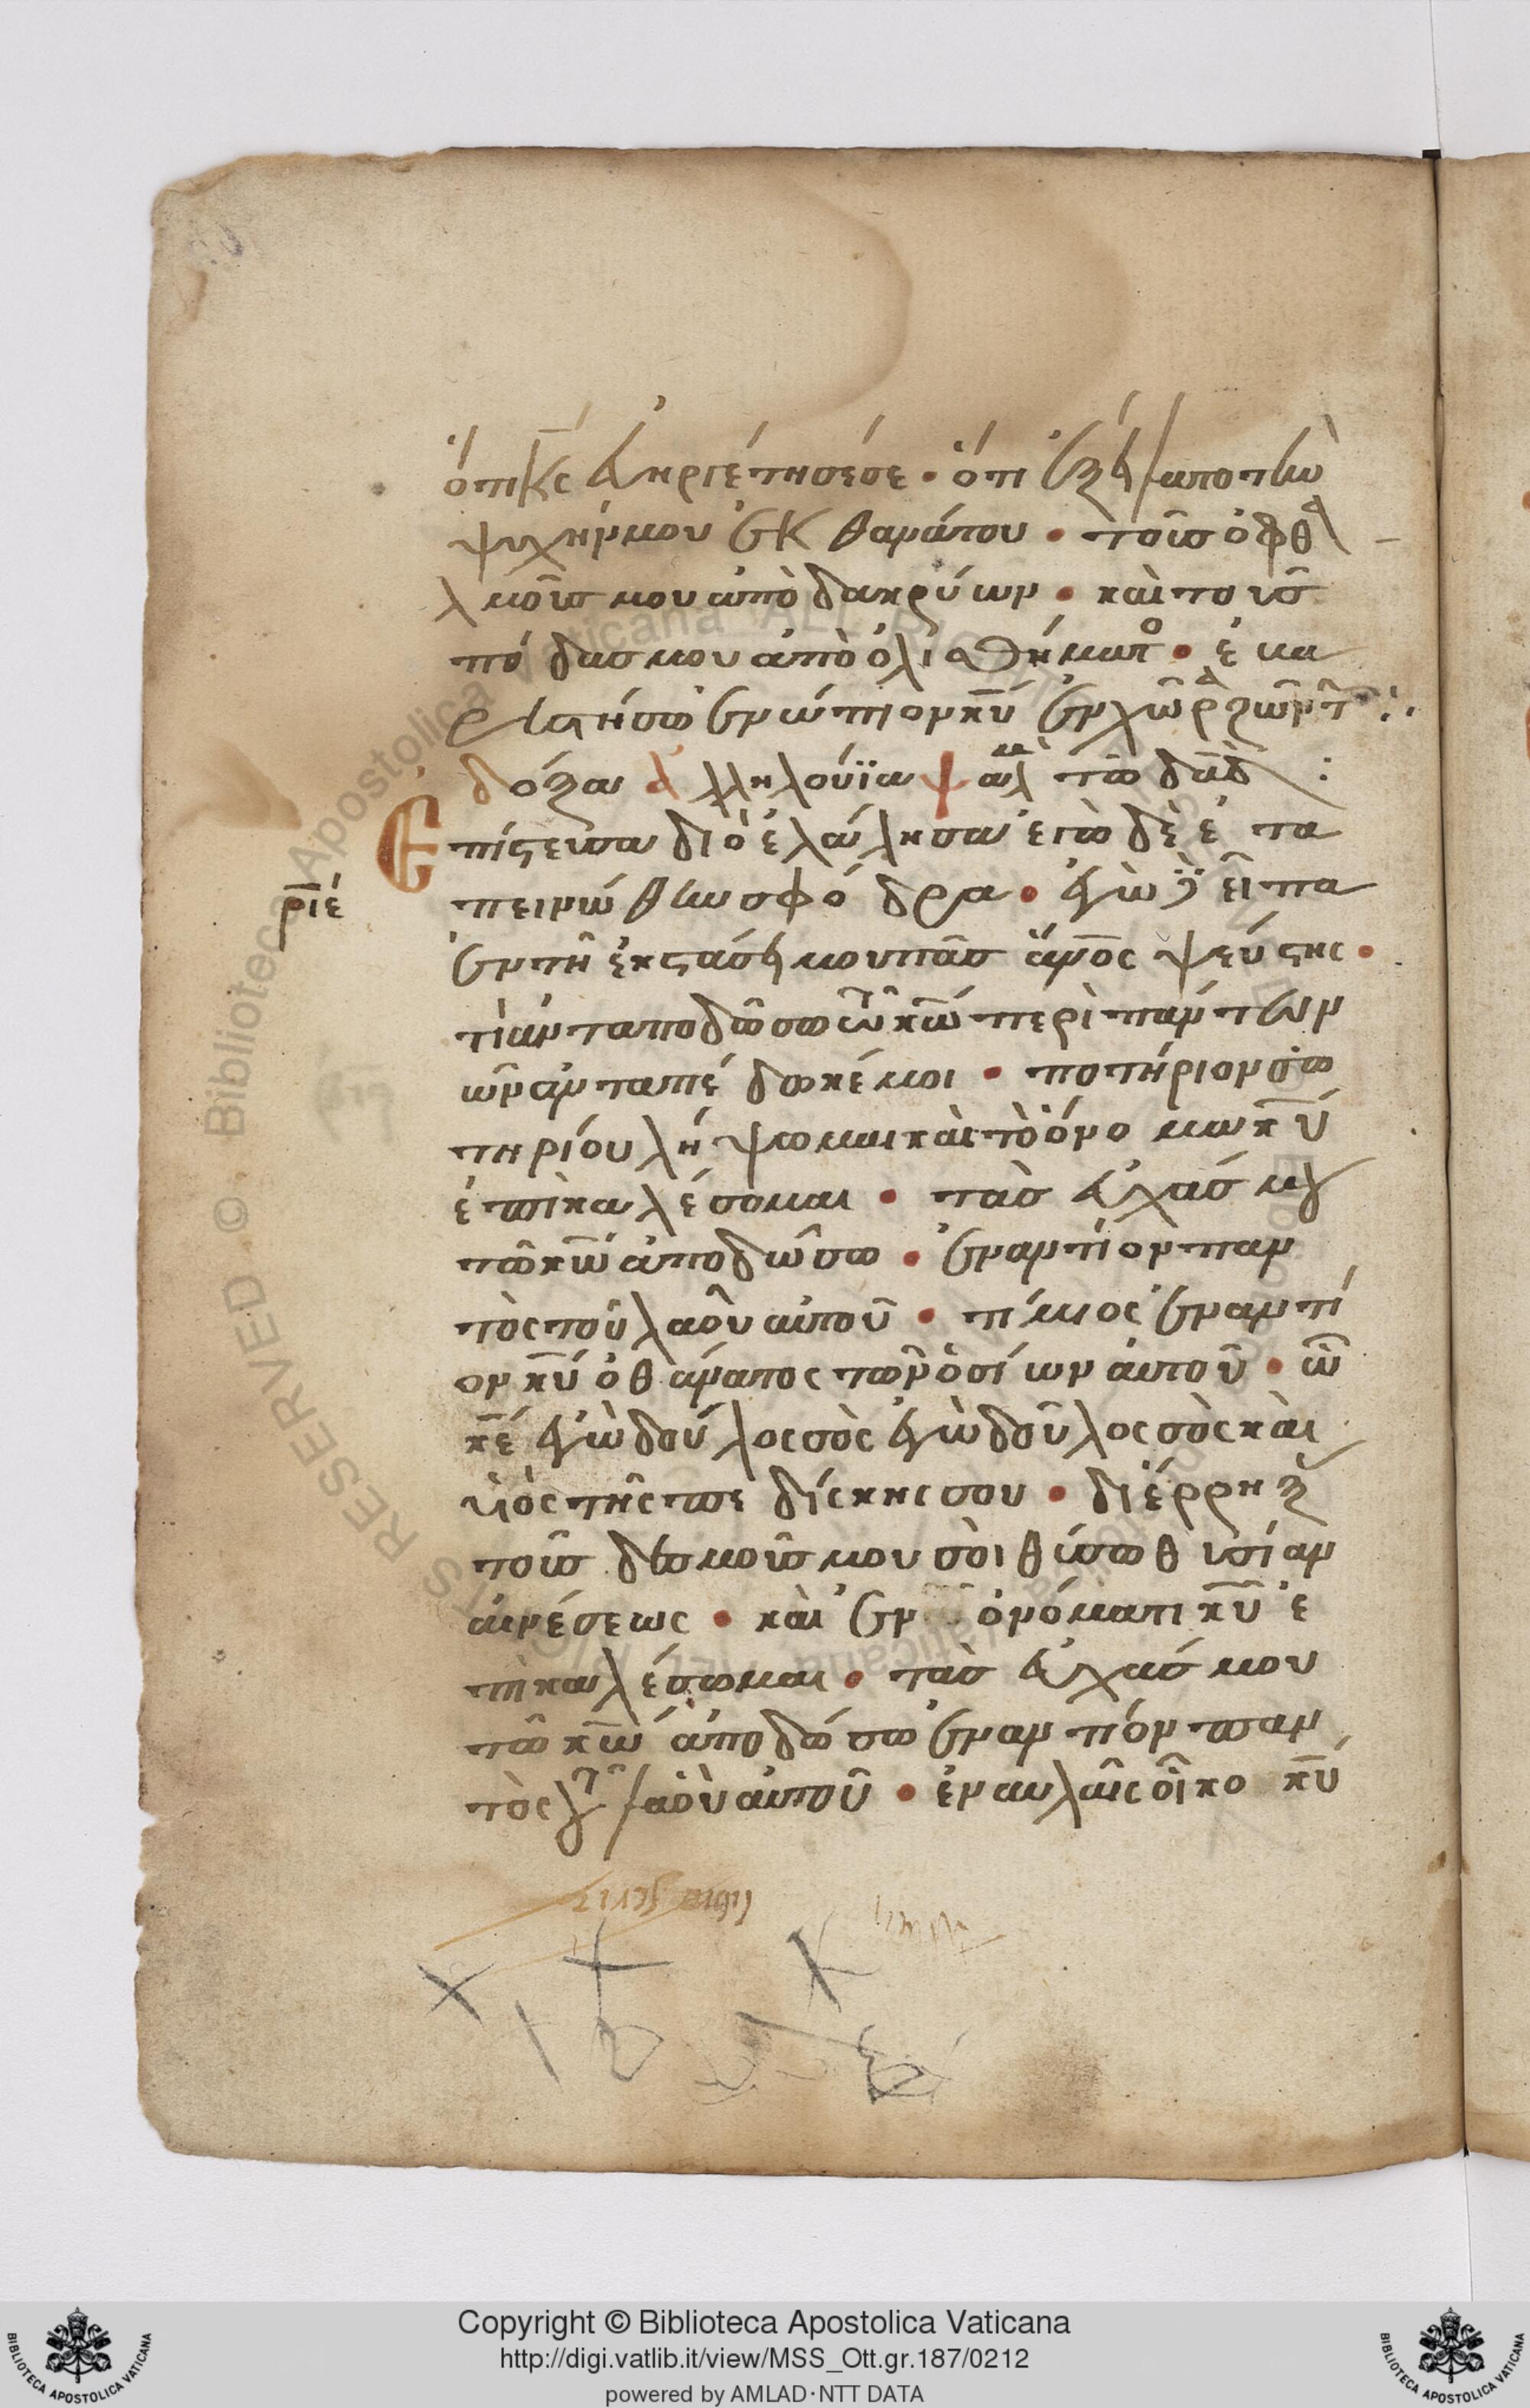 ὅτι κ̅ς̅ εὐηργέτησέ σε • ὅτι ἐξείλατο τὴν
ψυχήν μου ἐκ θανάτου • τοὺς ὀφθα
λμούς μου ἀπὸ δακρύων • καὶ τοὺς
πόδας μου ἀπὸ ὀλισθήματο • ἐυα
ρεστήσω ἐνώπιον κ̅υ̅ ἐν χώρα ζώντ :·
δόξα ἀλληλούϊα ψαλ τῶ δα̅δ̅ :
ρ̅ι̅ε̅
Ἐπίστευσα διὸ ἐλάλησα ἐγὼ δὲ ἐτα
πεινώθην σφόδρα • ἐγὼ δὲ εἶπα
ἐν τῆ ἐκστάσει μου πᾶς ἄνο̅ς ψεύστης •
τί ἀνταποδώσω τῶ κ̅ω̅ περὶ πάντων
ὧν ἀνταπέδωκέ μοι • ποτήριον σω
τηρίου λήψωμαι καὶ τὸ ὄνομα κ̅υ̅
ἐπικαλέσομαι • τὰς εὐχάς μου
τῶ κ̅ω̅ ἀποδώσω • ἐναντίον παν
τὸς τοῦ λαοῦ αὐτοῦ • τίμιος ἐναντί
ον κ̅υ̅ ὁ θάνατος τῶν ὁσίων αὐτοῦ • ὦ
κ̅ε̅ ἐγὼ δούλος σὸς ἐγὼ δοῦλος σὸς καὶ
υἱὸς τῆς παιδίσκης σου • διέρρηξ
τοὺς δεσμούς μου σοὶ θύσω θυσίαν
αἰνέσεως • καὶ ἐν ὀνόματι κ̅υ̅ ἐ
πικαλέσωμαι • τὰς εὐχάς μου
τῶ κ̅ω̅ ἀποδώσω ἐναντίον παν
τὸς τοῦ λαοὺ αὐτοῦ • ἐν αυλαῖς οἴκο κ̅υ̅
BIBLIOTECA APOSTOLICA VATICANA
Copyright © Biblioteca Apostolica Vaticana
http://digi.vatlib.it/view/MSS_Ott.gr.187/0212
powered by AMLAD·NTT DATA
BIBLIOTECA APOSTOLICA VATICANA